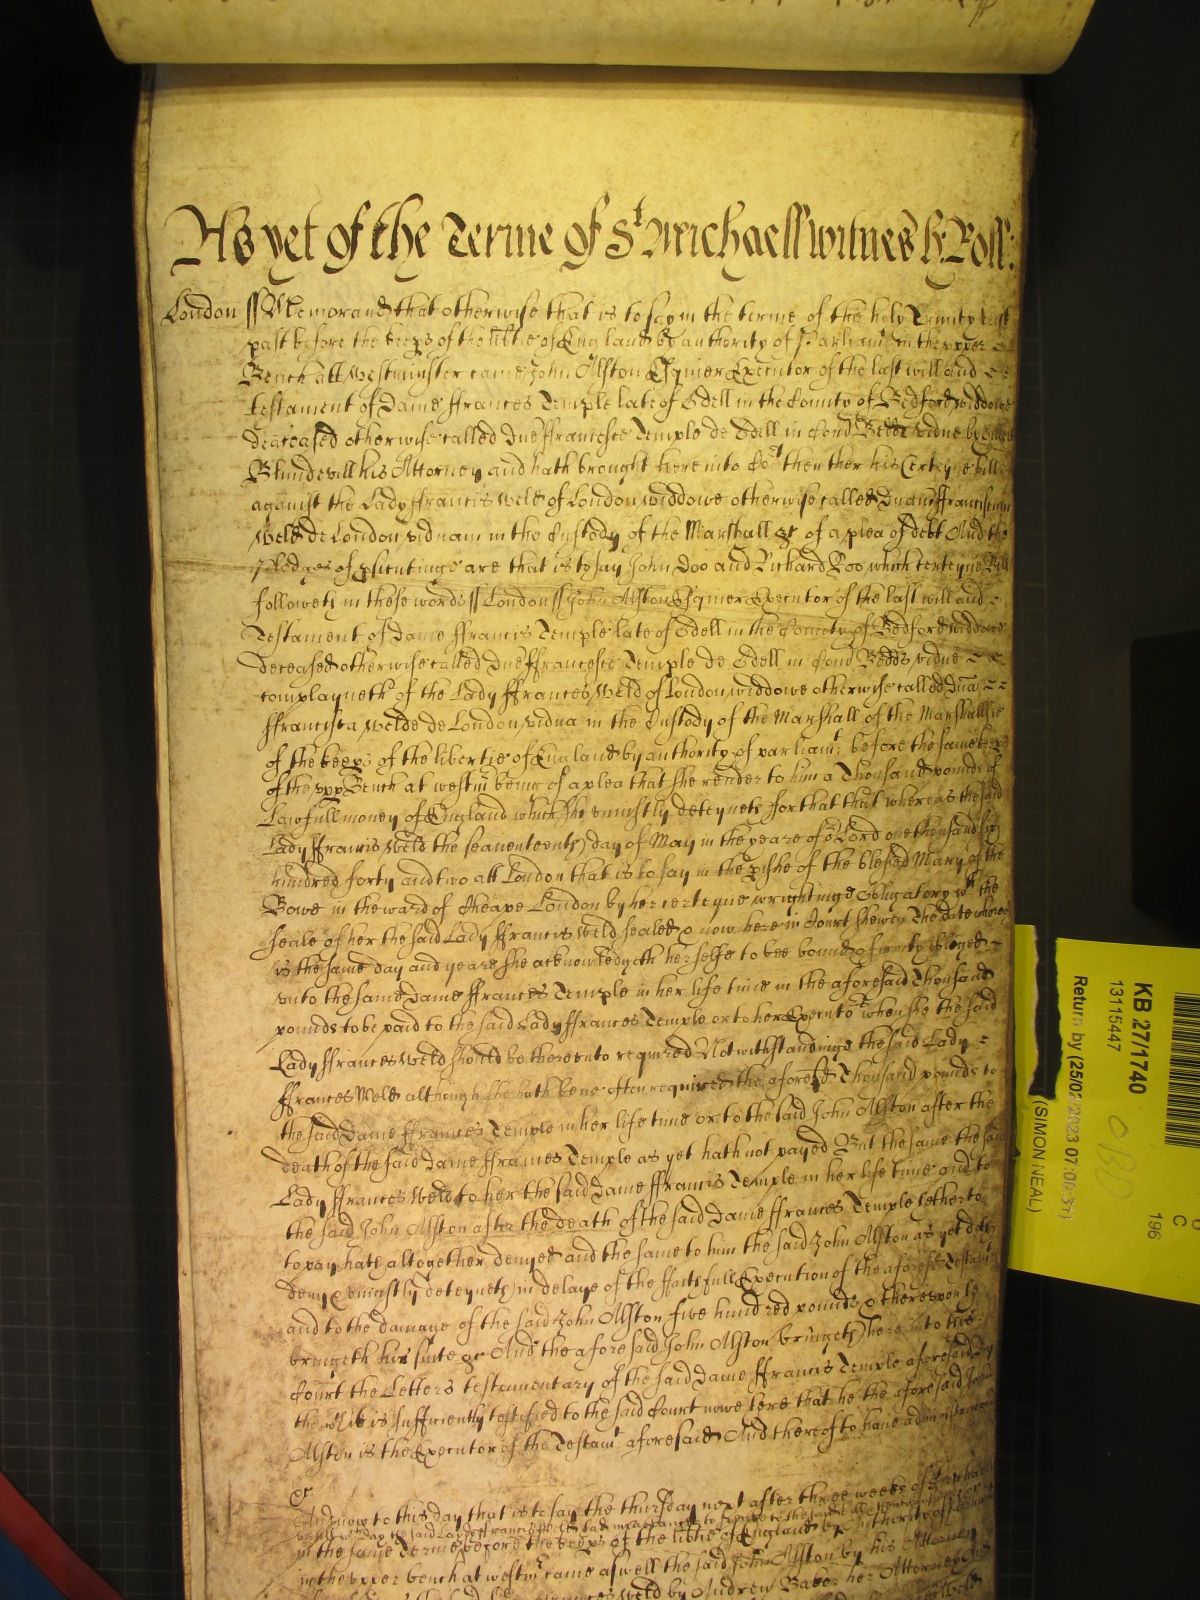 As yet of the Terme of St Michaell witnes h: Roll:
London ss Memorand that otherwise that is to say in the terme of the holy Trinity last
past before the keeps of the libtie of England by authority of Parliamt in the upper
Bench att Westminster came John Alston Esquier Executor of the last will and
testament of Dame ffrances Temple late of Odell in the County of Bedford widdowe
deceased otherwise called Dne ffrancesce Temple de Odell in Com Bedd vidue by
Blundevill his Attorney and hath brought here into Cort then ther his Certeyne bill
against the Lady ffrancis Weld of London widdowe otherwise called Dnam ffranciscam
Weld de London viduam in the Custody of the Marshall &c of a plea of debt And the
Pledges of psecutinge are that is to say John Doo and Richard Roo which certeyne Bill
followeth in these words ss London ss John Alston Esquier Executor of the last will and
Testament of Dame ffrancis Temple late of Odell in the County of Bedford widdowe
deceased otherwise called Dne ffrancesce Temple de Odell in Com Bedds vidue
complayneth of the Lady ffrances Weld of London widdowe otherwise called Dna
ffrancisca Welde de London vidua in the Custody of the Marshall of the Marshallsie
of the keeps of the libertie of England by authority of parliamt before the same keeps
of the upp Bench at westm being of a plea that she render to him a Thousand pounds of
Lawfull money of England which she uniustly deteyneth for that that whereas the said
Lady ffrancis Weld the seaventeenth day of May in the yeare of or Lord one thousand six
hundred forty and two att London that is to say in the pishe of the blessed Mary of the
Bowe in the ward of Cheape London by her certeyne wrightinge Obligatory wth the
seale of her the said Lady ffrancis Weld sealed & now here in Court shewen The date whereof
is the same day and yeare she acknowledgeth her selfe to bee bound & firmely obleged
unto the same Dame ffrances Temple in her life time in the aforesaid Thousand
pounds to be paid to the said Lady ffrances Temple or to her Executors when she the said
Lady ffrances Weld should be thereunto required Notwithstandinge the said Lady
ffrances Weld although she hath bene often required the aforesd Thousand pounds to
the said Dame ffrances Temple in her life time or to the said John Alston after the
death of the said Dame ffrances Temple as yet hath not payed But the same the said
Lady ffrances Weld to her the said Dame ffrancis Temple in her life time and to
the said John Alston after the death of the said Dame ffrances Temple hetherto
to pay hath altogether denyed and the same to him the said John Alston as yet doth
deny & uniustly deteyneth in delaye of the ffaithfull Execution of the aforesd Testamt
and to the damage of the said John Alston five hundred pounds & thereupon he
bringeth his suite &c And the aforesaid John Alston bringeth here into the
Court the Letters testamentary of the said Dame ffrancis Temple aforesaid By
the wch it is sufficiently testified to the said Court nowe here that he the aforesaid John
Alston is the Executor of the Testamt aforesaid And thereof to have administration
&c
And now to this day that is to say the thursday next after three weeks of St Michaell
untill wch day the said Lady ffrancis Weld had
in the same Terme before the keeps of the libtie of England by Authority of
in the upper bench at westmr came aswell the said John Alston by his Attorney
Weld by Andrew Baker her Attorney
KB 27/1740
13115447
Return by (25/02/2023 07:00:37)
(SIMON NEAL)
196
C